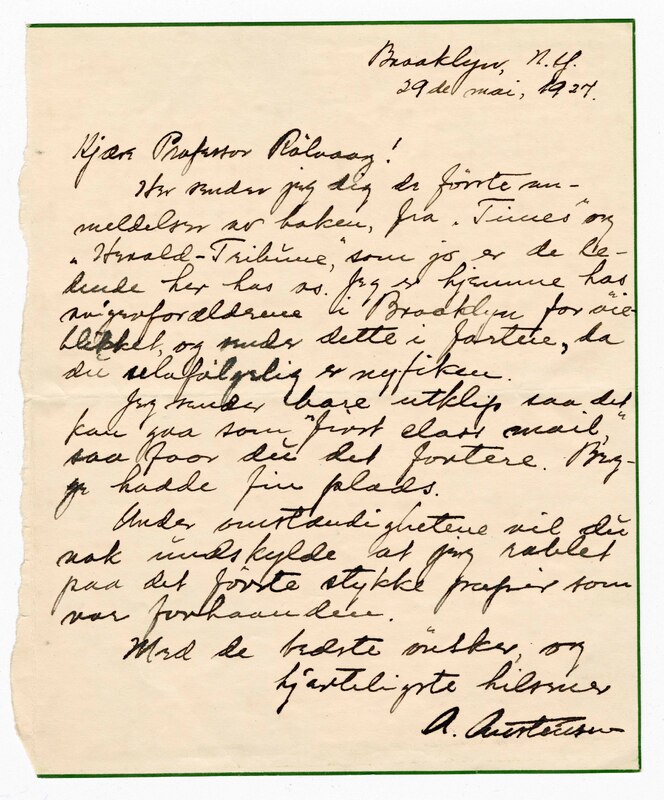 Brooklyn, N.Y.
29de mai, 1927.
Kjære Professor Rölvaag!
Her sender jeg dig de förste an-
meldelser av boken, fra "Times" og
"Herald-Tribüne," som jo er de le-
dende her hos os. Jeg er hjemme hos
svigerforældrene i Brooklyn for öie-
blikket, og sender dette i farten, da
dü selvfölgelig er nyfiken.
Jeg sender bare utklip saa det
kan gaa som "first class mail,"
saa faar dü det fortere. Beg-
ge hadde fin plads.
Under omstændighetene vil dü
nok ündskylde at jeg rablet
paa det förste stykke papir som
var forhaanden.
Med de bedste önsker, og
hjerteligste hilsener
A. Austensen